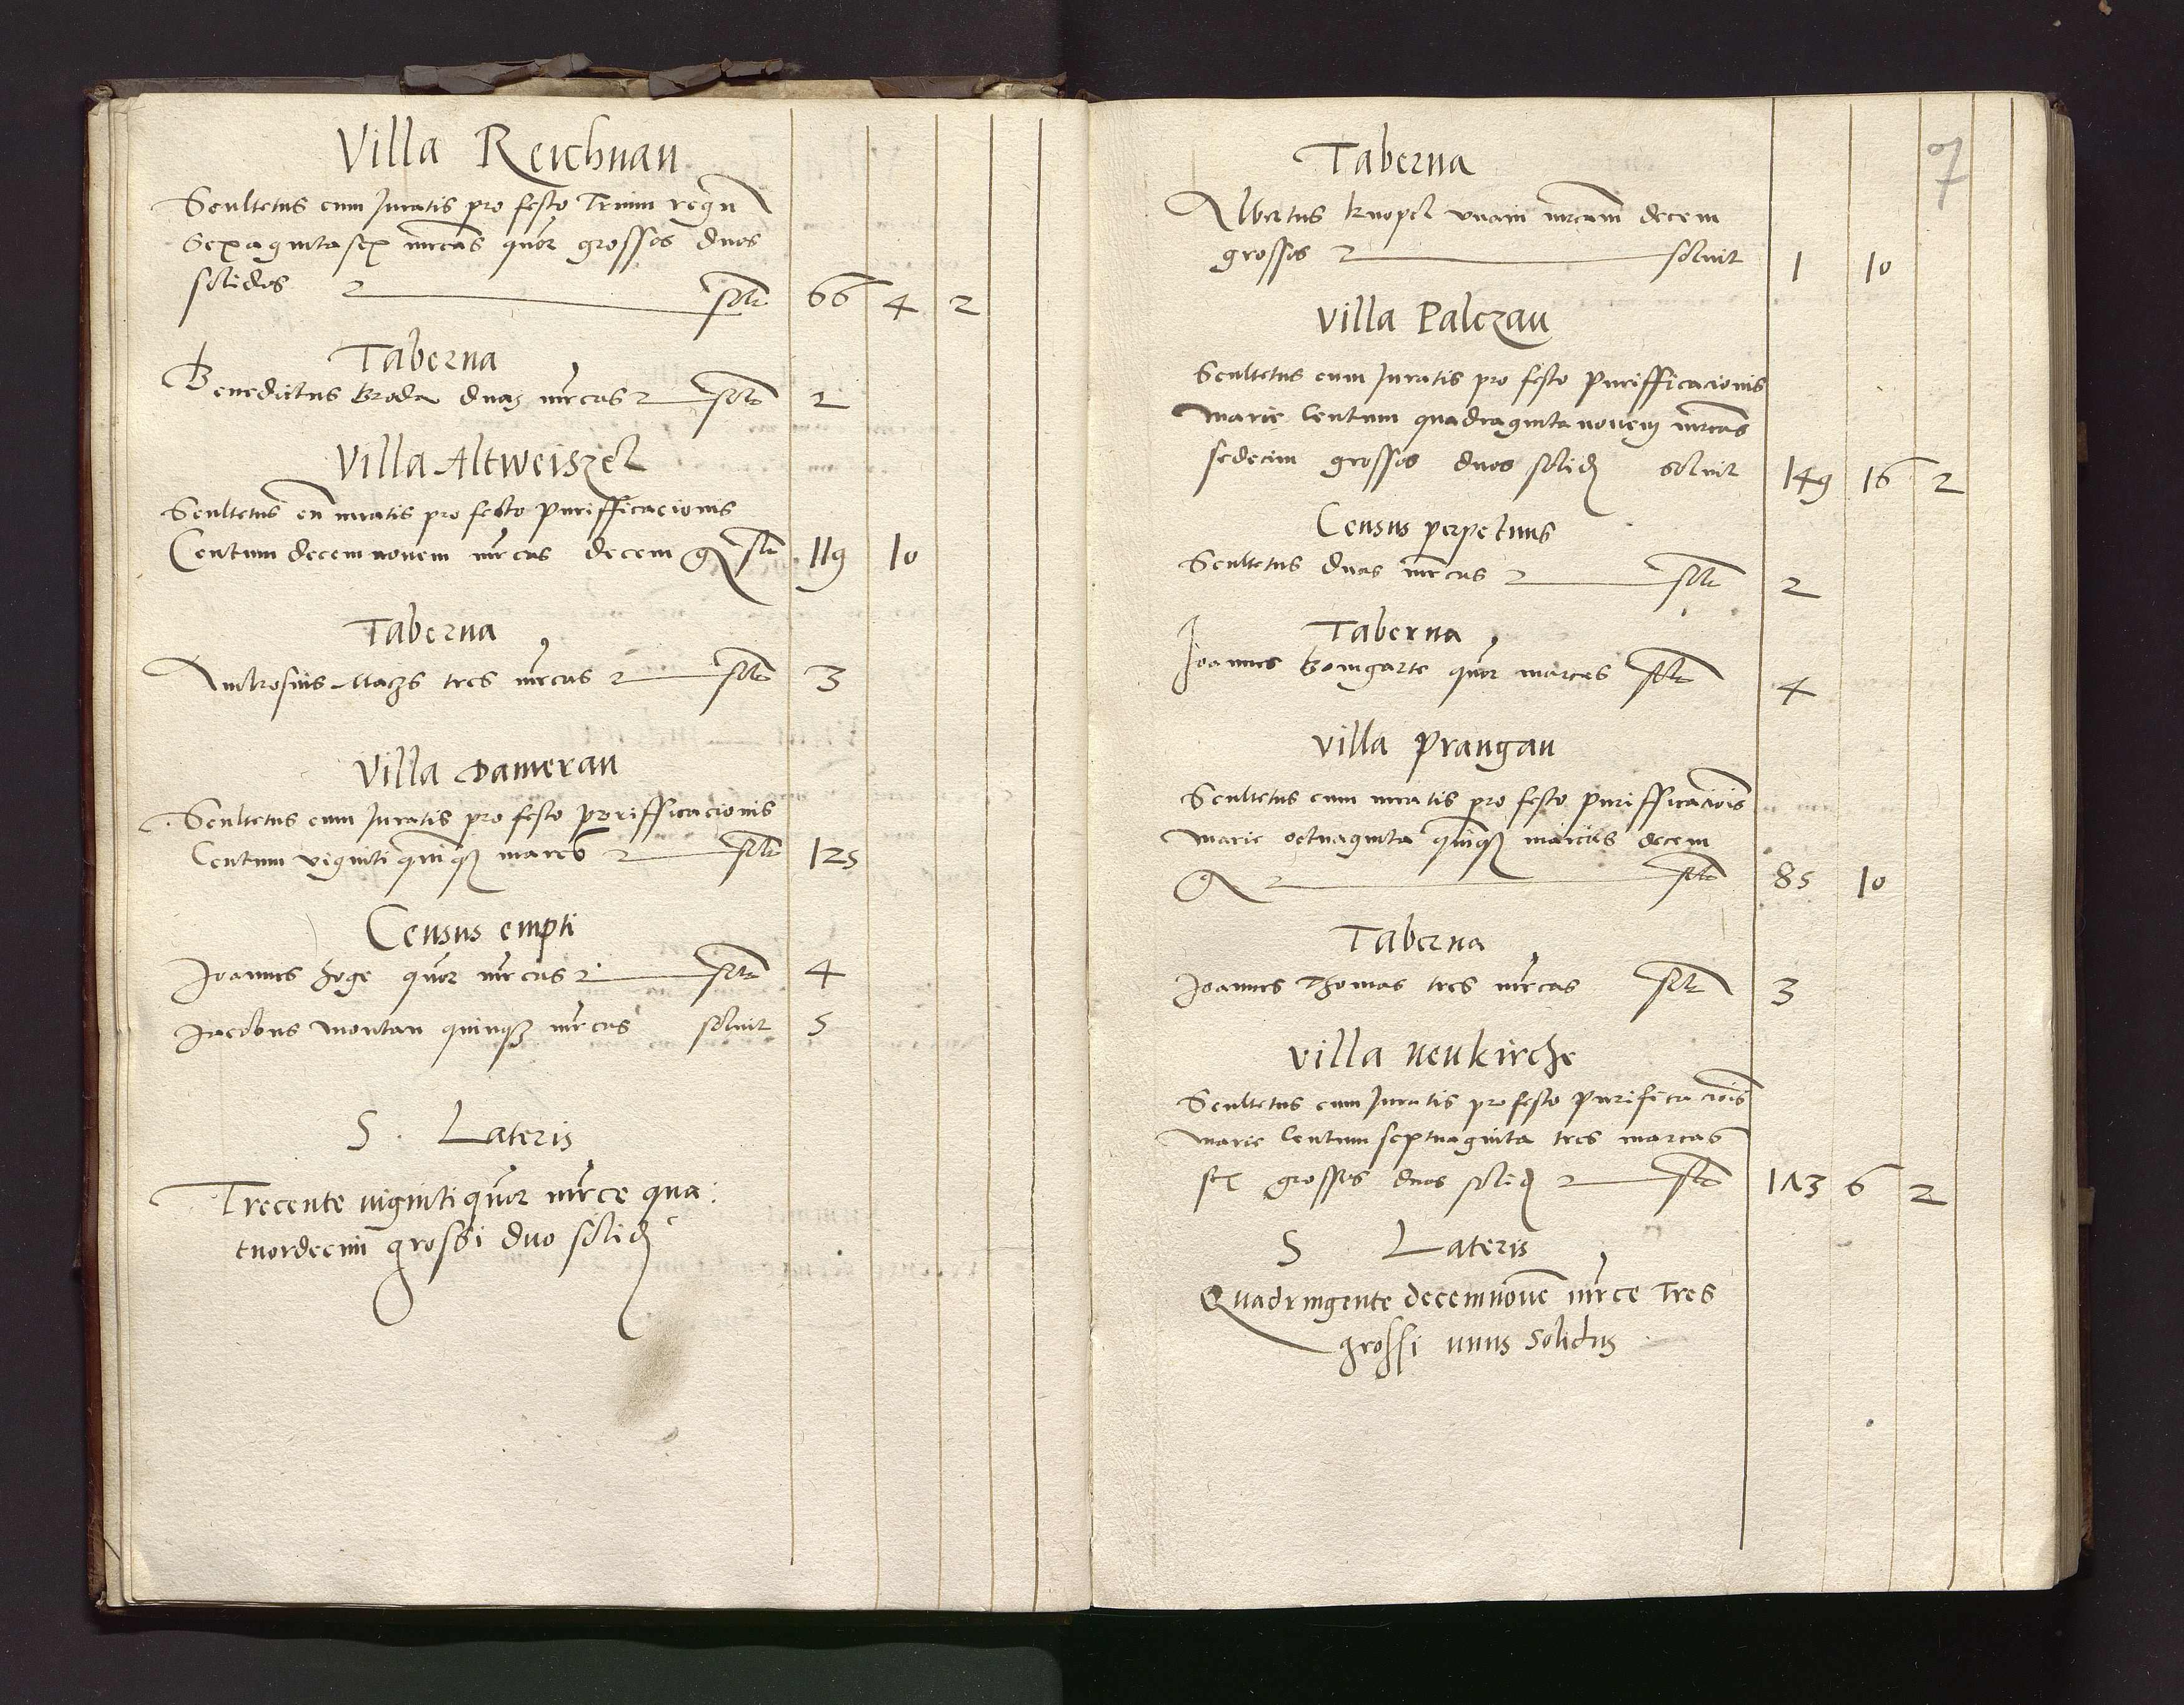 Villa Reichnau
Scultetus cum Juratis pro festo Trium regu
Sexagintasex mrcas quor grossos duos
solidos solt 66 4 2
Taberna
Benedictus Broda duas mrcas solt 2
Villa Altweiszel
Scultetus cu iuratis pro festo purifficacionis
Centum decem novem mrcas decem g solt 119 10
Taberna
Ambrosius Machs tres mrcas solt 3
Villa Damerau
Scultetus cum Juratis pro festo purifficacionis
Centum viginti quinq marcas solt 125
Census empti
Joannes Hoge quor mrcas solt 4
Jacobus Montau quinq mrcas soluit 5
S. Lateris
Trecente viginti quor mrce qua:
tuordecim grossi duo solid
7
Taberna
Albertus Knopel vnam mrcam decem
grossos soluit 1 10
Villa Palczau
Scultetus cum Juratis pro festo purifficacionis
marie Centum quadraginta novem mrcas
sedecim grossos duos solid soluit 149 16 2
Census perpetuus
Scultetus duas mrcas solt 2
Taberna
Joannes Bomgarte quor marcas solt 4
Villa Prangau
Scultetus cum iuratis pro festo purifficaciois
marie octuaginta quinq marcas decem
g solt 85 10
Taberna
Joannes Thomas tres mrcas solt 3
Villa Neukirche
Scultetus cum Juratis pro festo purificaciois
marie Centum septuaginta tres marcas
sex grossos duos solid solt 173 6 2
S Lateris
Quadringente decemnoue mrce Tres
grossi unus solidus